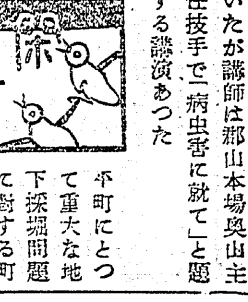 いたが講師は郡山本場奥山主
任技手で「病虫害に就て」と題
する講演あつた
平町にとつ
て重大な地
下採堀問題
て對する町